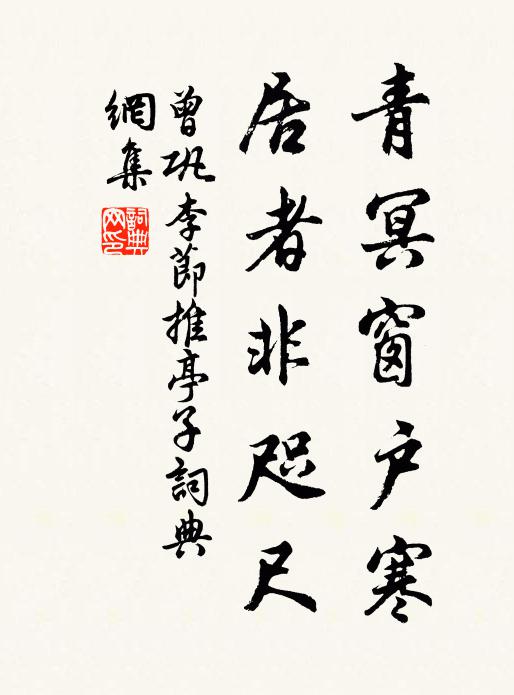 青冥窗户寒
居者非咫尺
曾巩李節推亭子詞典
網集
詞典
网印